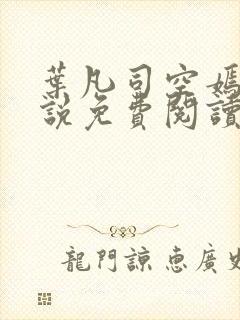 葉凡司空嫣
說免費閱讀
龍門諒恵廣